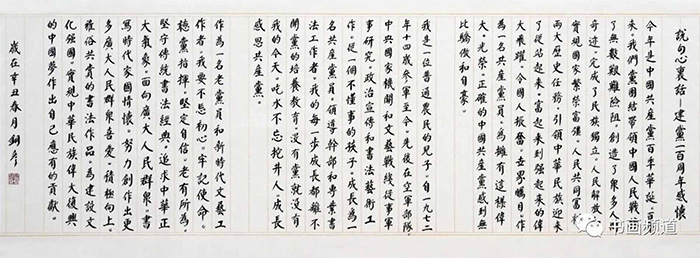 說句心裏話—建黨一百周年感懷
今年是中國共產黨百年華誕。百年
來。我們黨團結帶領中國人民戰勝
了無數艱難險阻創造了眾多人間
奇迹。完成了民族獨立。人民解放和
實現國家繁榮富强。人民共同富裕
兩大歷史任務。引領中華民族迎來
了從站起來。富起來到强起來的偉
大飛躍。令國人振奮。世界矚目。作
為一名共產黨員。為擁有這樣偉
大。光榮。正確的中國共產黨感到無
比驕傲和自豪。
我是一位普通農民的兒子。自一九七二
年十四歲參軍至今。先後在空軍部隊。
中央國家機關和文藝戰綫從事軍
事研究。政治宣傳和書法藝術工
作。從一個不懂事的孩子。成長為一
名共產黨員。領導幹部和專業書
法工作者。我的每一步成長都離不
開黨的培養教育。沒有黨就沒有
我的今天。吃水不忘挖井人。成長
感恩共產黨。
作為一名老黨員和新時代文藝工
作者。我要不忘初心。牢記使命。
聽黨指揮。堅定自信。老有所為。
堅守傳統書法經典。追求中華正
大氣象。面向廣大人民群眾。書
寫時代家國情懷。努力創作出更
多廣大人民群眾喜愛。積極向上。
雅俗共賞的書法作品。為建設文
化强國。實現中華民族偉大復興
的中國夢作出自己應有的貢獻。
歲在辛丑春月
书画频道